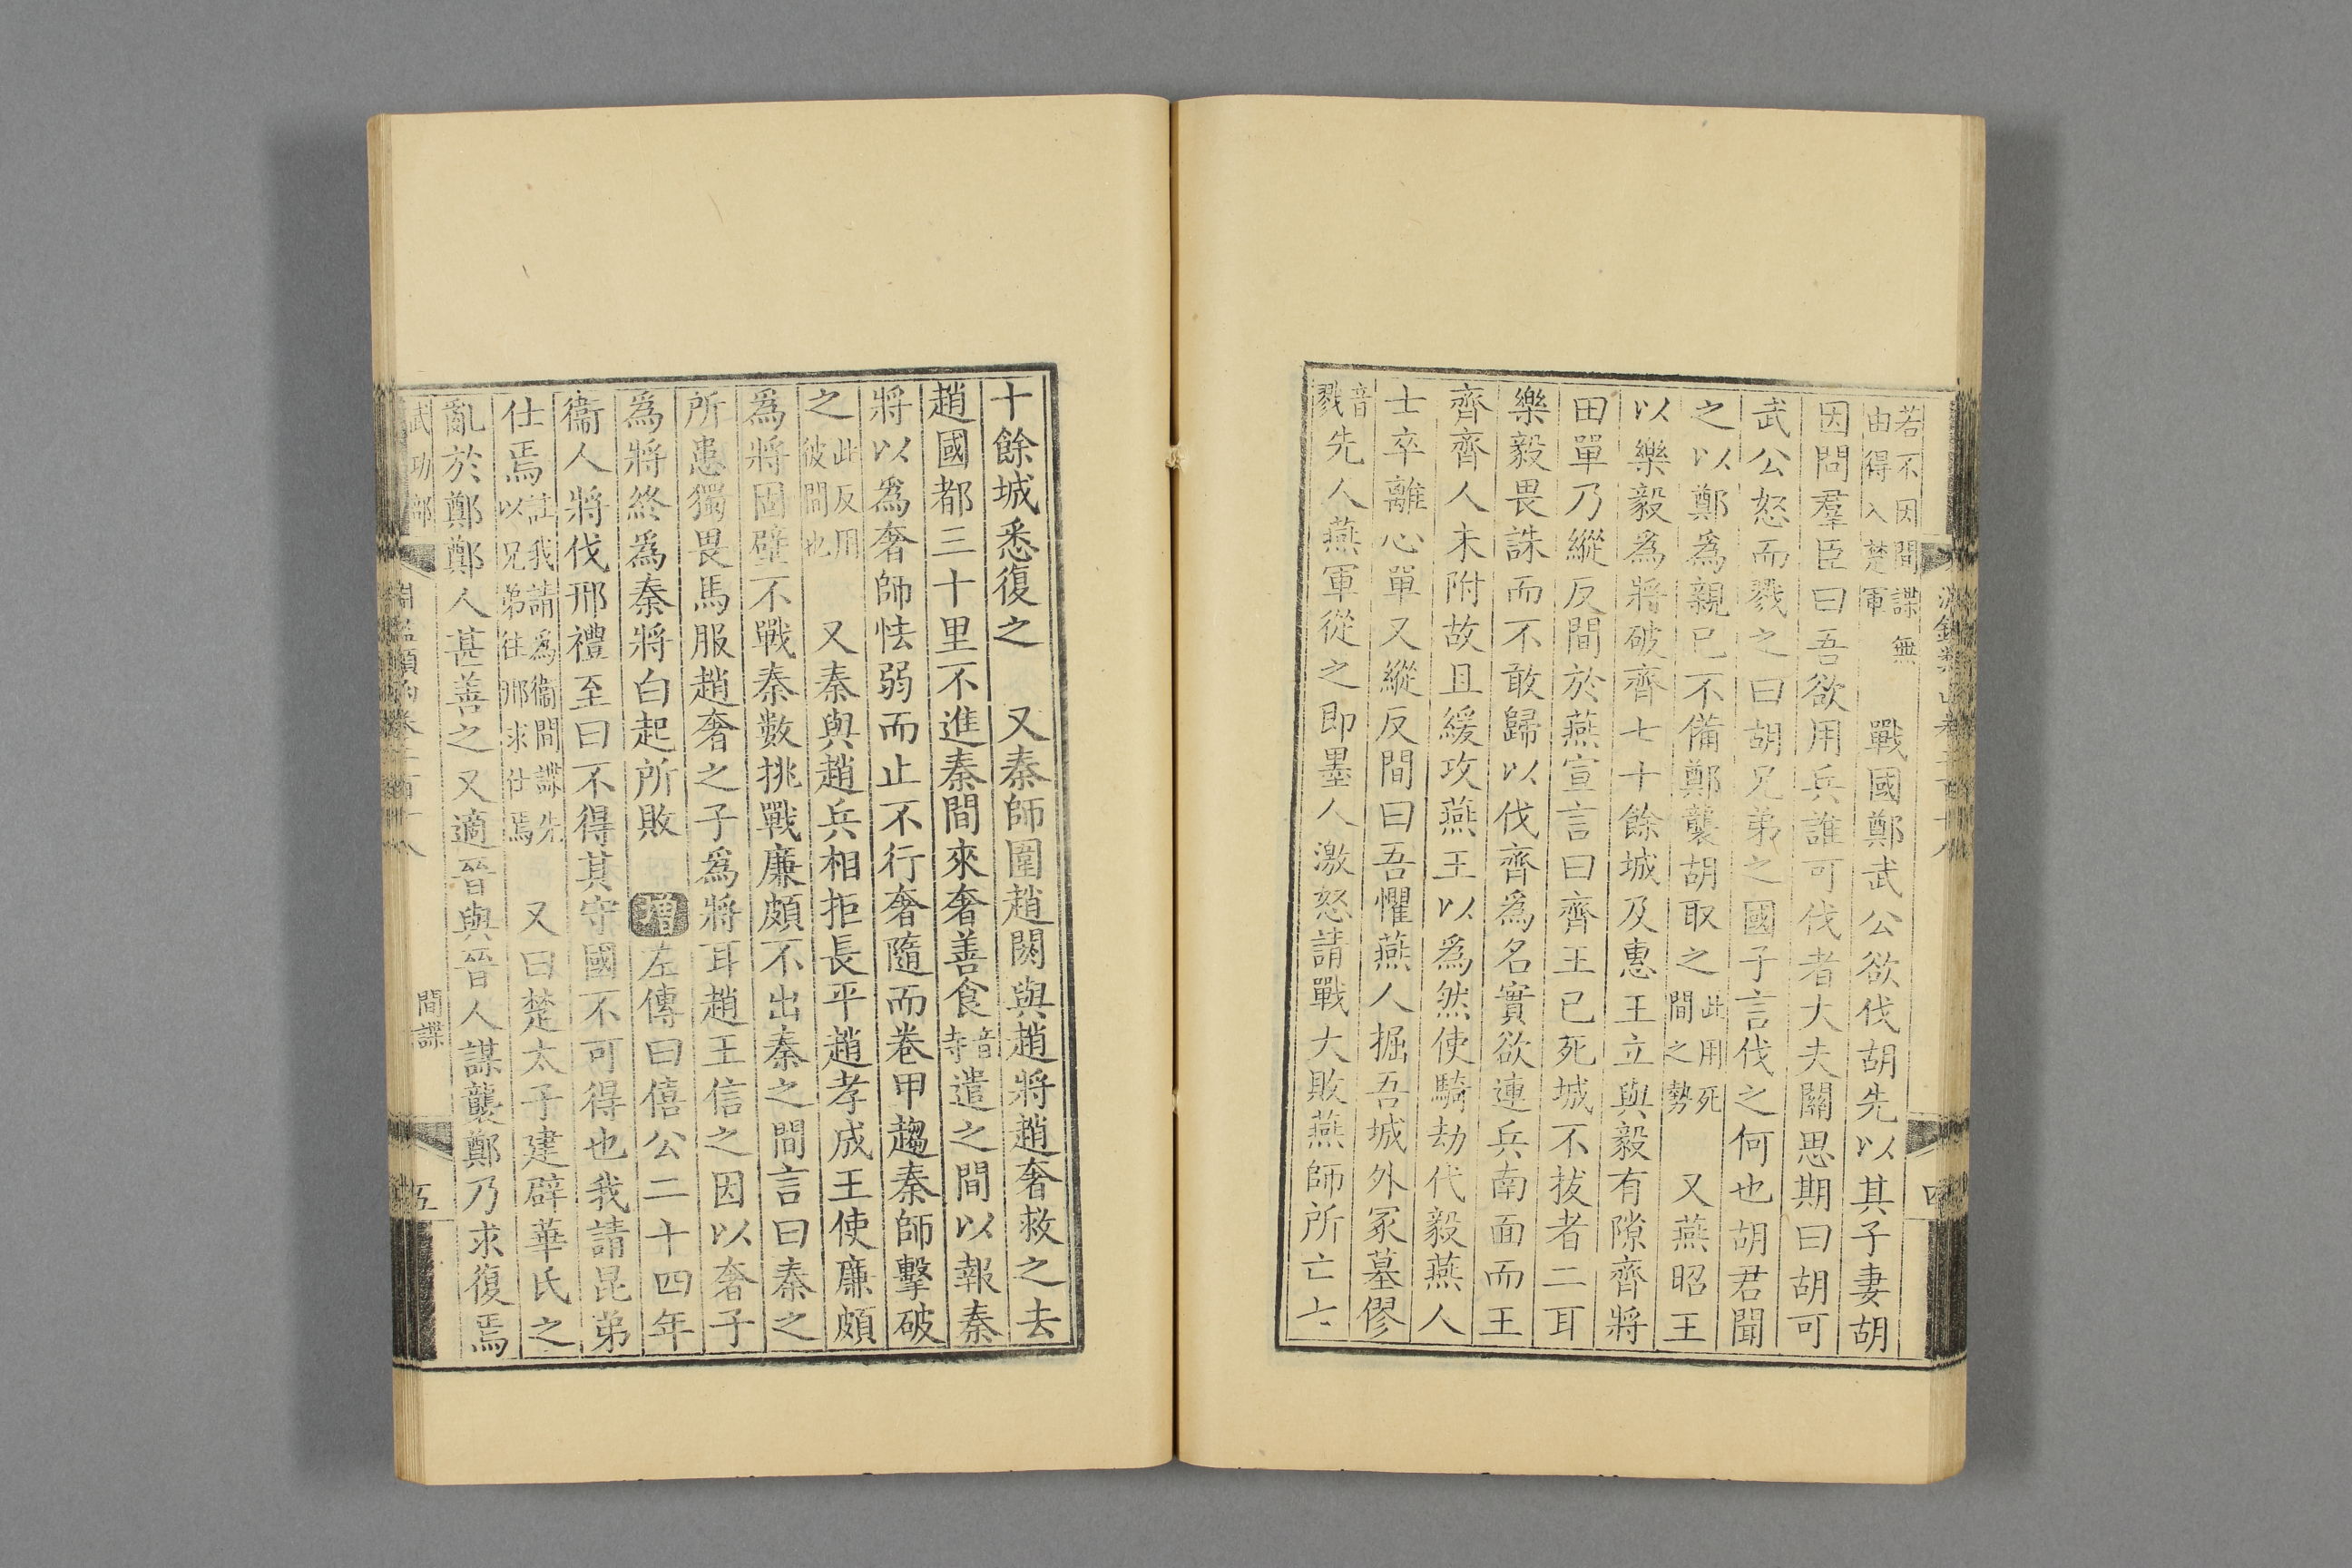 若不因間諜無
由得入楚軍　戰國鄭武公欲伐胡先以其子妻胡
因問羣臣曰吾欲用兵誰可伐者大夫關思期曰胡可
武公怒而戮之曰胡兄弟之國子言伐之何也胡君聞
之以鄭爲親已不備鄭襲胡取之此用死間之勢　又燕昭王
以樂毅爲將破齊七十餘城及惠王立與毅有隙齊將
田單乃縱反間於燕宣言曰齊王已死城不拔者二耳
樂毅畏誅而不敢歸以伐齊爲名實欲連兵南面而王
齊齊人未附故且緩攻燕王以爲然使騎劫代毅燕人
士卒離心單又縱反間曰吾懼燕人掘吾城外冢墓僇
音戮先人燕軍從之即墨人激怒請戰大敗燕師所亡七
四
十餘城悉復之　又秦師圍趙閼與趙將趙奢救之去
趙國都三十里不進秦間來奢善食音寺遣之間以報秦
將以爲奢師怯弱而止不行奢隨而卷甲趨秦師擊破
之此反用彼間也　又秦與趙兵相拒長平趙孝成王使廉頗
爲將固壁不戰秦數挑戰廉頗不出秦之間言曰秦之
所患獨畏馬服趙奢之子爲將耳趙王信之因以奢子
爲將終爲秦將白起所敗　增左傳曰僖公二十四年
衞人將伐邢禮至曰不得其守國不可得也我請昆弟
仕焉註我請爲衞間諜先以兄弟往邢求仕焉　又曰楚太子建辟華氏之
亂於鄭鄭人甚善之又適晉與晉人謀襲鄭乃求復焉
武功部
淵鑑類函卷二百十八
間諜
五